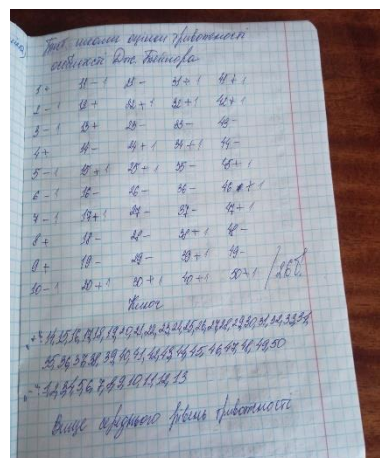 Тест шкали оцінки тривожності
особистості Дж. Тейлора
1 + 11 - 1 21 - 31 + 1 41 + 1
2 - 1 12 + 22 + 1 32 + 1 42 + 1
3 - 1 13 + 23 - 33 - 43 -
4 + 14 - 24 + 1 34 + 1 44 -
5 - 1 15 + 1 25 + 1 35 - 45 + 1
6 - 1 16 - 26 - 36 - 46 + 1
7 - 1 17 + 1 27 - 37 - 47 + 1
8 + 18 - 28 - 38 + 1 48 -
9 + 19 - 29 - 39 + 1 49 -
10 - 1 20 + 1 30 + 1 40 + 1 50 + 1 /26б/
Ключ
"+": 14, 15, 16, 17, 18, 19, 20, 21, 22, 23, 24, 25, 26, 27, 28, 29, 30, 31, 32, 33, 34,
35, 36, 37, 38, 39, 40, 41, 42, 43, 44, 45, 46, 47, 48, 49, 50
"-": 1, 2, 3, 4, 5, 6, 7, 8, 9, 10, 11, 12, 13
Вище середнього рівень тривожності